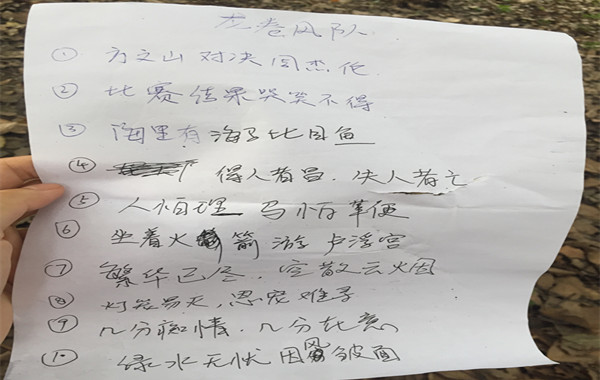 龙卷风队
① 方文山对决周杰伦
② 比赛结果哭笑不得
③ 海里有海马比目鱼
④ 得人者昌，失人者亡
⑤ 人怕理 马怕革便
⑥ 坐着火箭游卢浮宫
⑦ 繁华已尽，空散云烟
⑧ 灯花易灭，恩宠难寻
⑨ 几分痴情，几分
⑩ 绿水无忧因风皱面